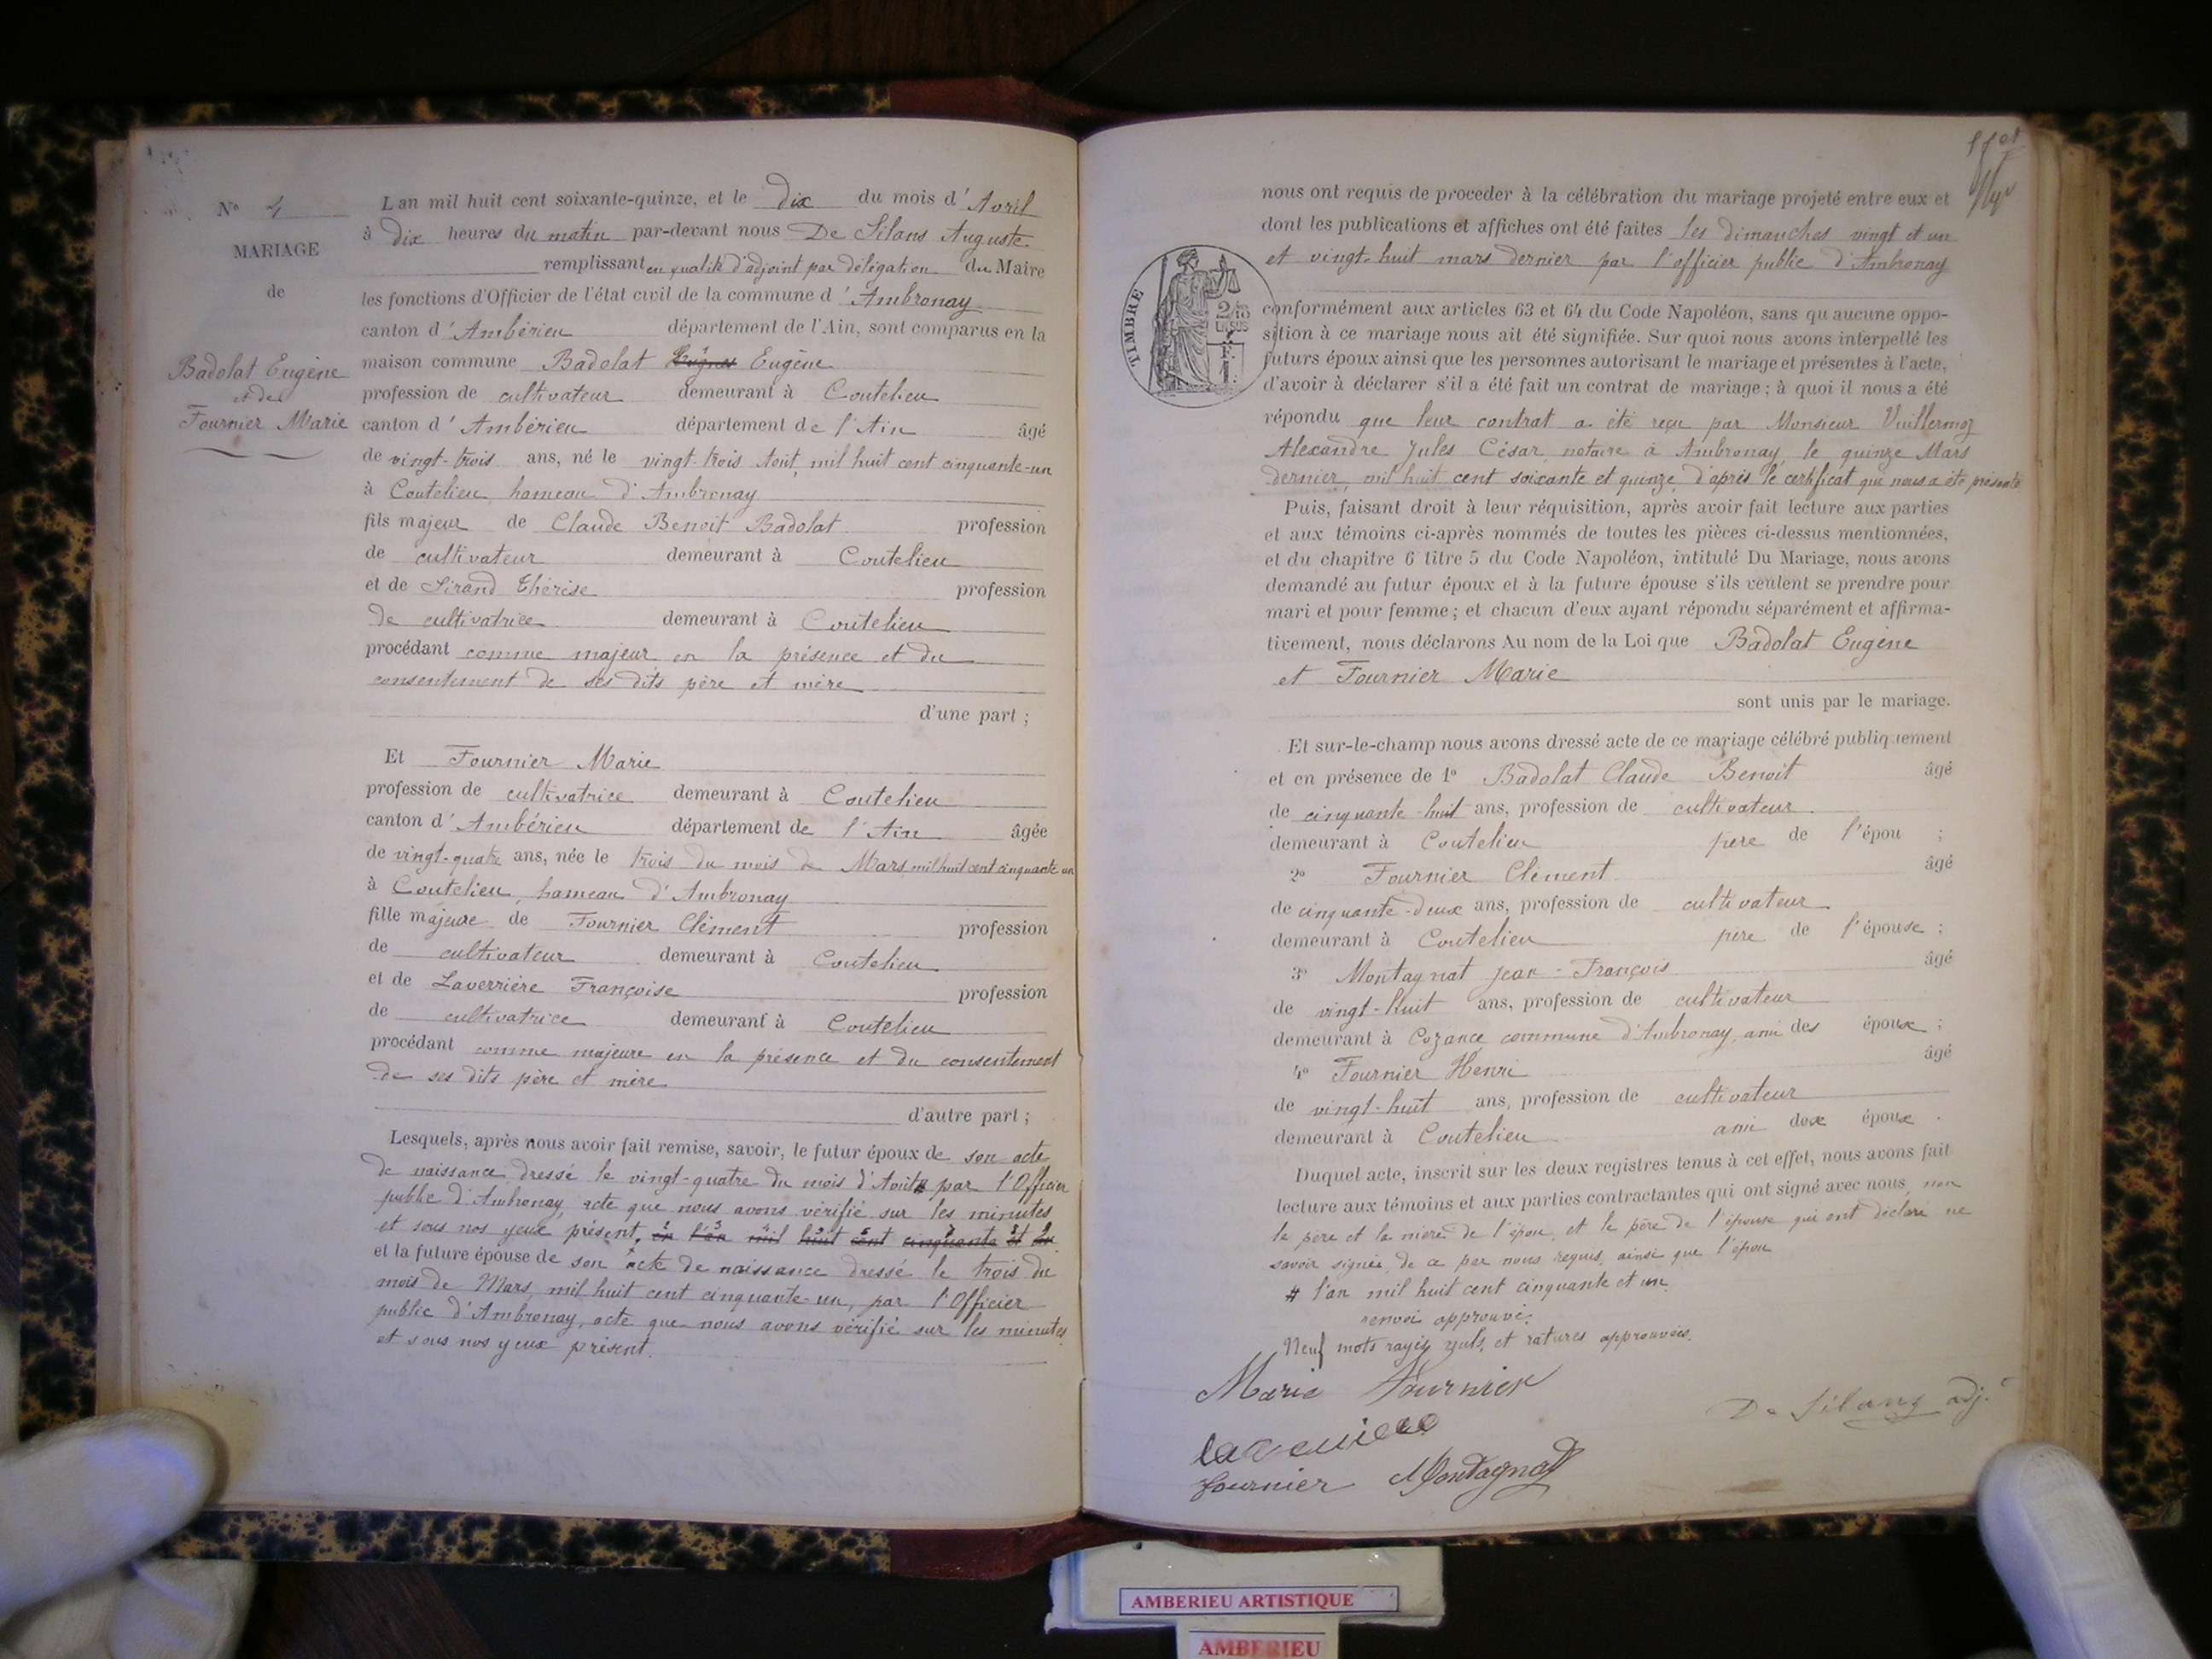 N° 4
MARIAGE
de
Badolat Eugène
et de
Fournier Marie
L'an mil huit cent soixante-quinze, et le dix du mois d'Avril
à dix heures du matin par-devant nous De Silans Auguste
remplissant en qualité d'adjoint par délégation du Maire
les fonctions d'Officier de l'état civil de la commune d'Ambronay
canton d'Ambérieu département de l'Ain, sont comparus en la
maison commune Badolat Eugène
profession de cultivateur demeurant à Coutelieu
canton d'Ambérieu département de l'Ain âgé
de vingt-trois ans, né le vingt-trois Août mil huit cent cinquante-un
à Coutelieu, hameau d'Ambronay
fils majeur de Claude Benoit Badolat profession
de cultivateur demeurant à Coutelieu
et de Sirand Thérèse profession
de cultivatrice demeurant à Coutelieu
procédant comme majeur en la présence et du
consentement de ses dits père et mère
d'une part ;
Et Fournier Marie
profession de cultivatrice demeurant à Coutelieu
canton d'Ambérieu département de l'Ain âgée
de vingt-quatre ans, née le trois du mois de Mars mil huit cent cinquante un
à Coutelieu, hameau d'Ambronay
fille majeure de Fournier Clément profession
de cultivateur demeurant à Coutelieu
et de Laverrière Françoise profession
de cultivatrice demeurant à Coutelieu
procédant comme majeure en la présence et du consentement
de ses dits père et mère
d'autre part ;
Lesquels, après nous avoir fait remise, savoir, le futur époux de son acte
de naissance dressé le vingt-quatre du mois d'Août # par l'Officier
public d'Ambronay, acte que nous avons vérifié sur les minutes
et sous nos yeux présent, en l'an mil huit cent cinquante et un
et la future épouse de son acte de naissance dressé le trois du
mois de Mars, mil huit cent cinquante-un, par l'Officier
public d'Ambronay, acte que nous avons vérifié sur les minutes
et sous nos yeux présent.
nous ont requis de proceder à la célébration du mariage projeté entre eux et
dont les publications et affiches ont été faites les dimanches vingt et un
et vingt-huit mars dernier par l'officier public d'Ambronay
TIMBRE
2/10
EN SUS
1 F.
conformément aux articles 63 et 64 du Code Napoléon, sans qu'aucune oppo-
sition à ce mariage nous ait été signifiée. Sur quoi nous avons interpellé les
futurs époux ainsi que les personnes autorisant le mariage et présentes à l'acte,
d'avoir à déclarer s'il a été fait un contrat de mariage ; à quoi il nous a été
répondu que leur contrat a été reçu par Monsieur Vuillermoz
Alexandre Jules César, notaire à Ambronay, le quinze Mars
dernier, mil huit cent soixante et quinze, d'après le certificat qui nous a été présenté
Puis, faisant droit à leur réquisition, après avoir fait lecture aux parties
et aux témoins ci-après nommés de toutes les pièces ci-dessus mentionnées,
et du chapitre 6 titre 5 du Code Napoléon, intitulé Du Mariage, nous avons
demandé au futur époux et à la future épouse s'ils veulent se prendre pour
mari et pour femme ; et chacun d'eux ayant répondu séparément et affirma-
tivement, nous déclarons Au nom de la Loi que Badolat Eugène
et Fournier Marie
sont unis par le mariage.
Et sur-le-champ nous avons dressé acte de ce mariage célébré publiquement
et en présence de 1° Badolat Claude Benoit âgé
de cinquante-huit ans, profession de cultivateur
demeurant à Coutelieu père de l'épou ;
2° Fournier Clément âgé
de cinquante-deux ans, profession de cultivateur
demeurant à Coutelieu père de l'épouse ;
3° Montagnat Jean-François âgé
de vingt-huit ans, profession de cultivateur
demeurant à Cozance commune d'Ambronay, ami des époux ;
4° Fournier Henri âgé
de vingt-huit ans, profession de cultivateur
demeurant à Coutelieu ami des époux .
Duquel acte, inscrit sur les deux registres tenus à cet effet, nous avons fait
lecture aux témoins et aux parties contractantes qui ont signé avec nous, non
le père et la mère de l'épou, et le père de l'épouse qui ont déclaré ne
savoir signer, de ce par nous requis, ainsi que l'épou
# l'an mil huit cent cinquante et un
renvoi approuvé.
Neuf mots rayés nuls, et ratures approuvées.
Marie Fournier
De Silans adj.
Fournier Montagnat
AMBERIEU ARTISTIQUE
AMBERIEU